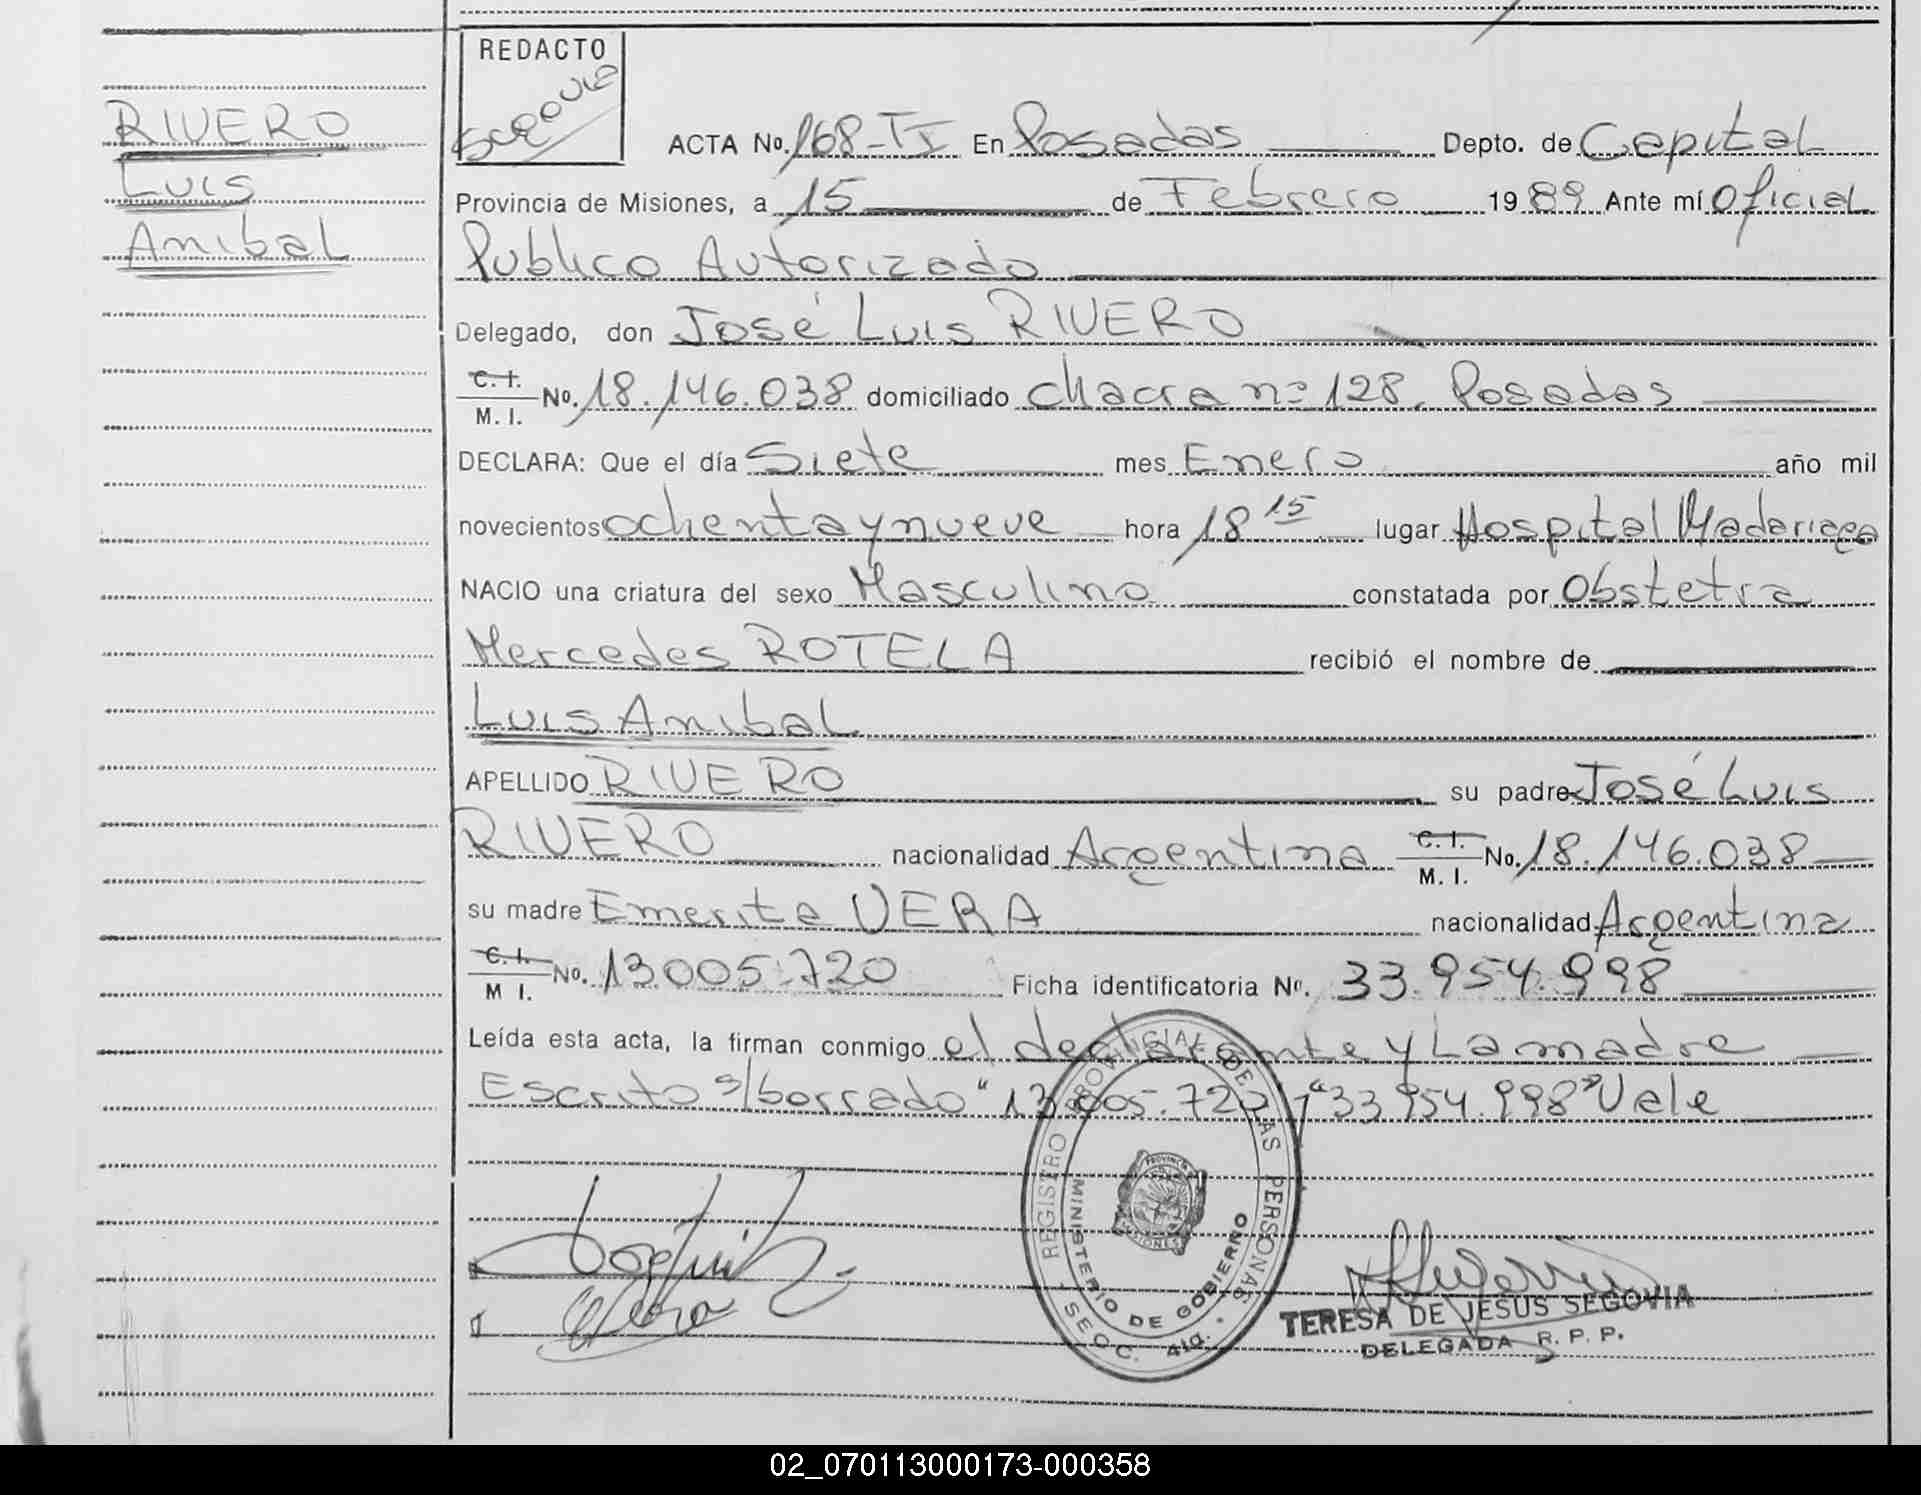 REDACTO
RIVERO
Luis
Anibal
ACTA No. 168-TI En Posadas Depto. de Capital
Provincia de Misiones, a 15 de Febrero 1989 Ante mí Oficial
Publico Autorizado
Delegado, don José Luis RIVERO
C. I. M. I. No. 18.146.038 domiciliado chacra nº 128, Posadas
DECLARA: Que el día Siete mes Enero año mil
novecientos ochenta y nueve hora 18 15 lugar Hospital Madariaga
NACIO una criatura del sexo Masculino constatada por Obstetra
Mercedes ROTELA recibió el nombre de
Luis Anibal
APELLIDO RIVERO su padre José Luis
RIVERO nacionalidad Argentina C. I. M. I. No. 18.146.038
su madre Emerita VERA nacionalidad Argentina
C. I. M I. No. 13.005.720 Ficha identificatoria No. 33.954.998
Leída esta acta, la firman conmigo el declarante y La madre
Escrito s/borrado "13.005.720" "33.954.998" Vale
REGISTRO PROVINCIAL DE LAS PERSONAS
MINISTERIO DE GOBIERNO
PROVINCIA DE MISIONES
SECC. 4ta.
TERESA DE JESUS SEGOVIA
DELEGADA R. P. P.
02_070113000173-000358